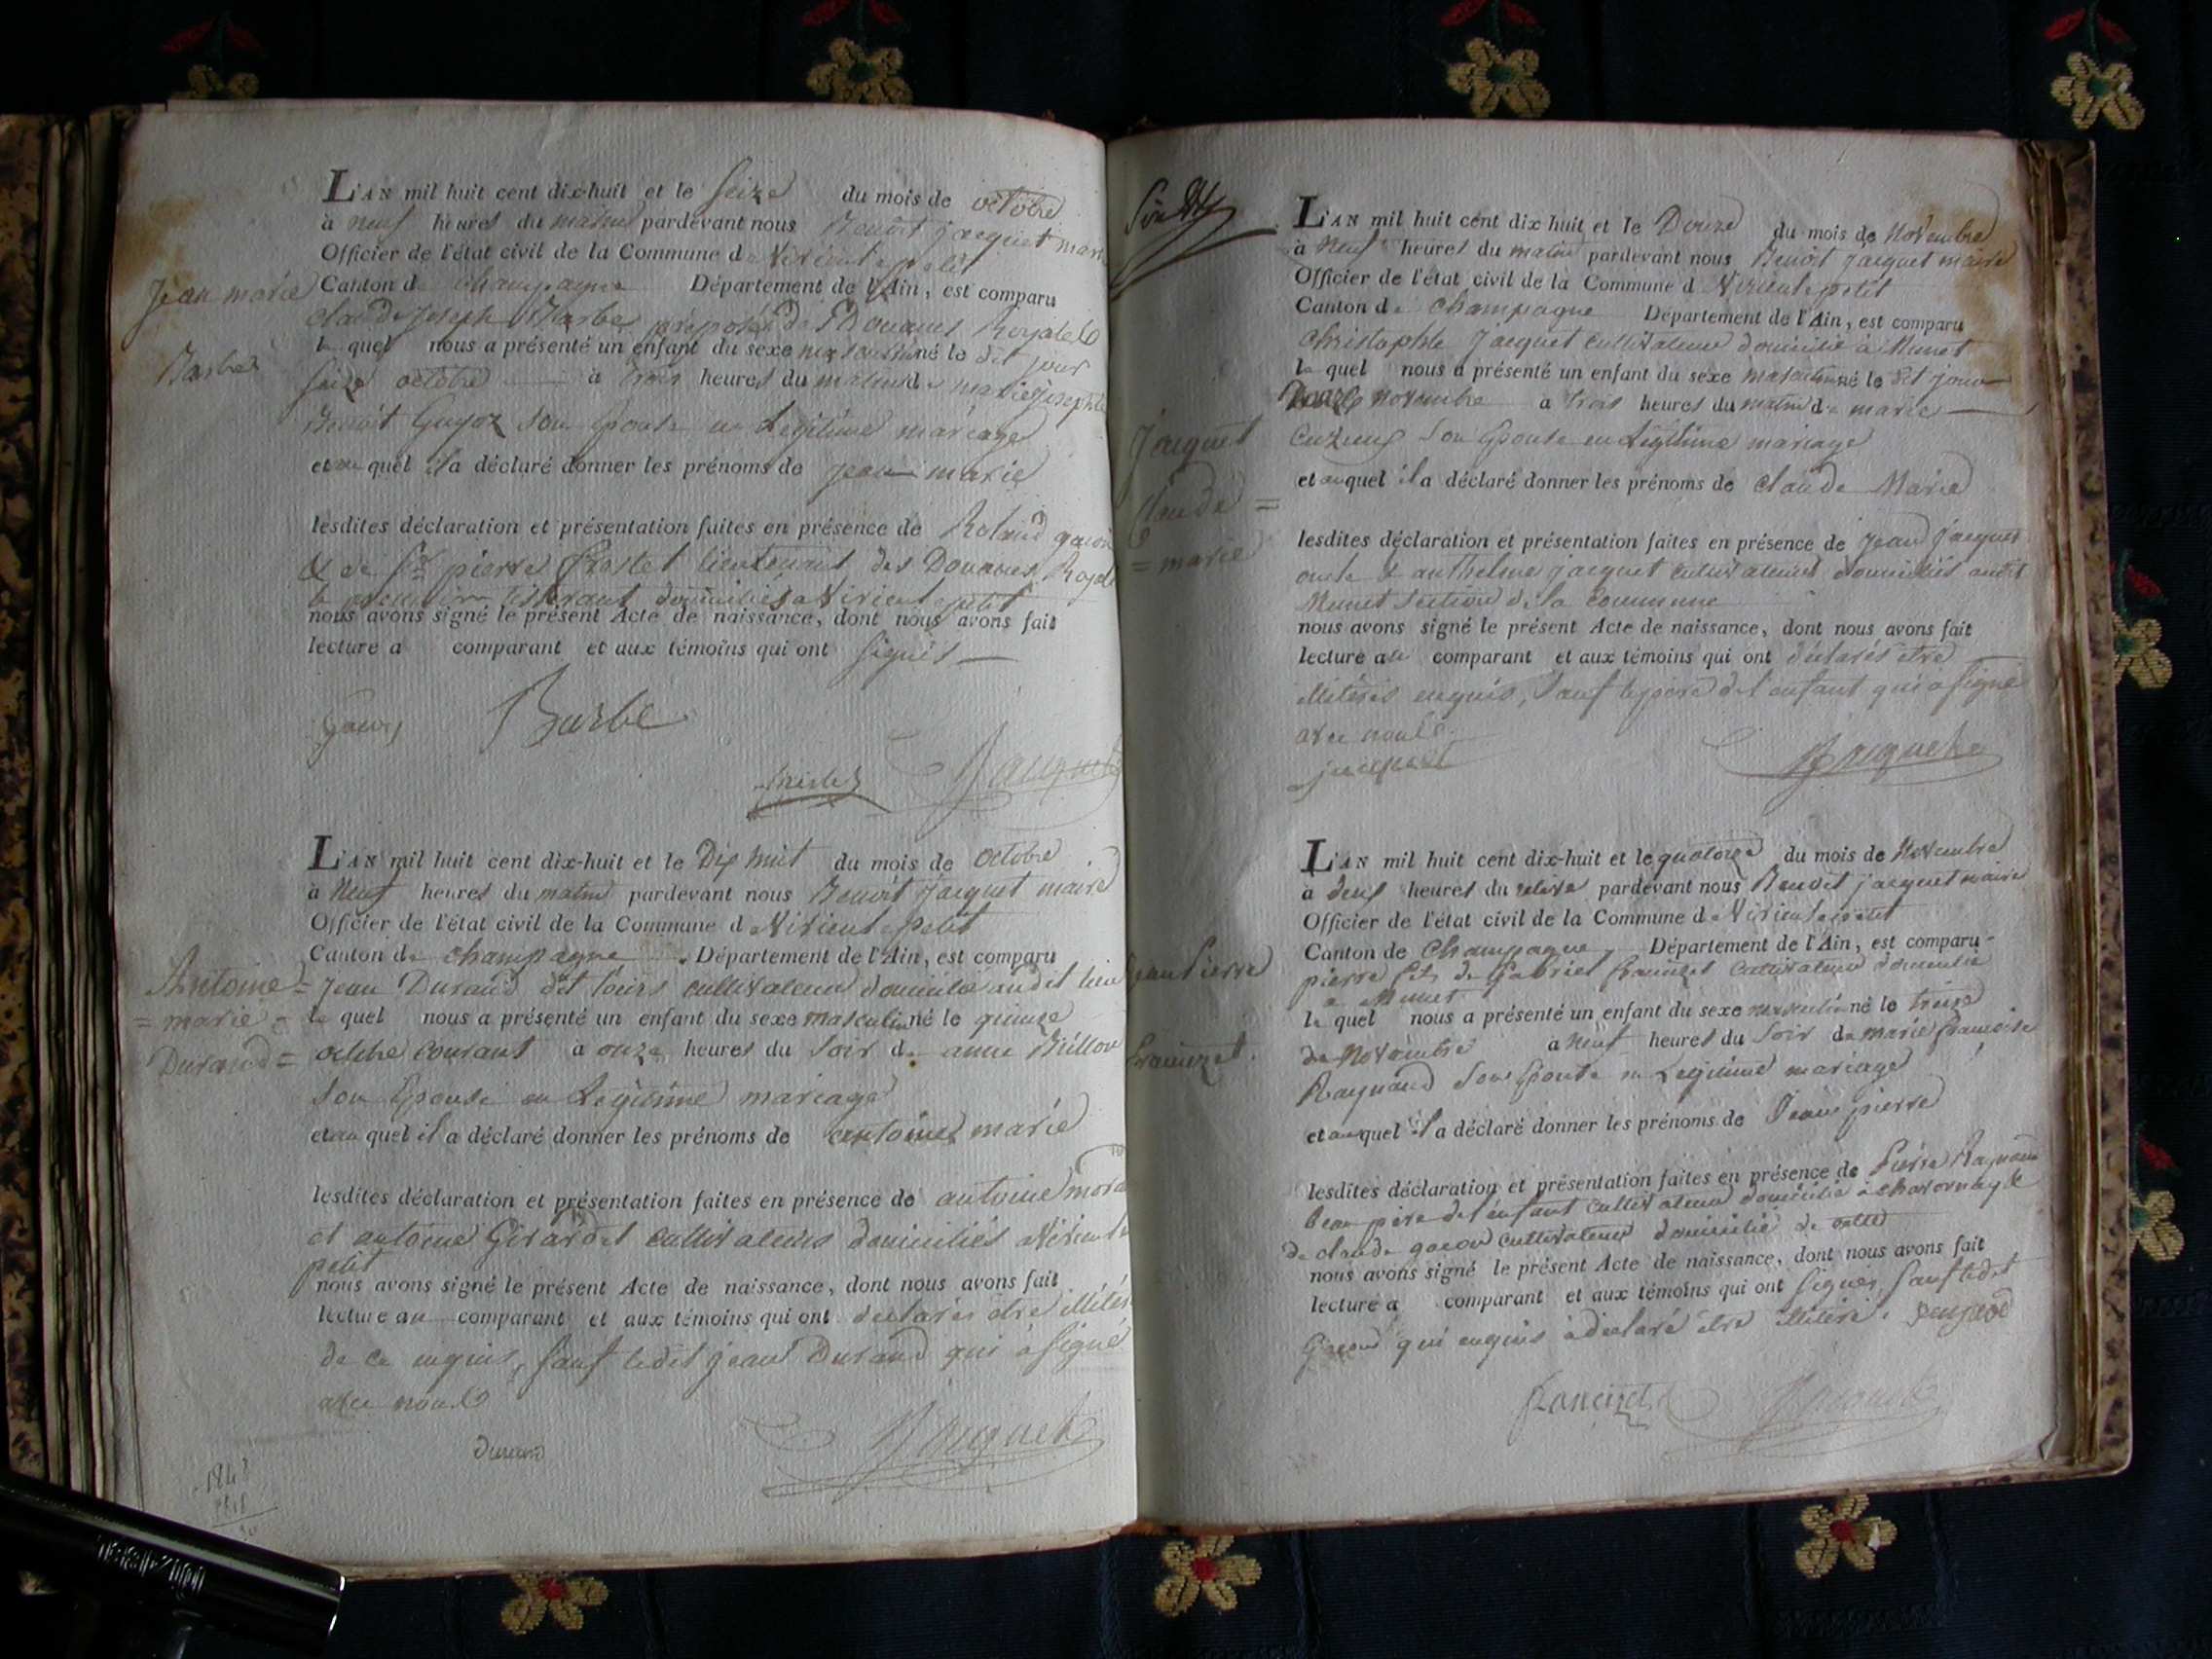 L'AN mil huit cent dix-huit et le Seize du mois de octobre
à neuf heures du matin pardevant nous Benoit jacquet maire
Officier de l'état civil de la Commune de Virieu le petit
Canton de champagne Département de l'Ain, est comparu
Jean marie
Barbe
claude Joseph Barbe préposé des Douanes Royales
le quel nous a présenté un enfant du sexe masculin né le dit jour
seize octobre à trois heures du matin de marie josephte
Benoit Guyoz son Epouse en Légitime mariage
et au quel il a déclaré donner les prénoms de jean marie
lesdites déclaration et présentation faites en présence de Roland
& de Sr pierre lieutenant des Douanes Royales
domiciliés a Virieu le petit
nous avons signé le présent Acte de naissance, dont nous avons fait
lecture a comparant et aux témoins qui ont signés
Barbe
Jacquet
L'AN mil huit cent dix-huit et le Dix huit du mois de octobre
à Neuf heures du matin pardevant nous Benoit Jacquet maire
Officier de l'état civil de la Commune de Virieu le petit
Canton de champagne Département de l'Ain, est comparu
Antoine =
= marie =
Durand =
Jean Durand dit cultivateur domicilié audit lieu
le quel nous a présenté un enfant du sexe masculin né le quinze
octobre courant à onze heures du soir de anne Billon
son Epouse en Légitime mariage
et au quel il a déclaré donner les prénoms de antoine marie
lesdites déclaration et présentation faites en présence de antoine
et antoine Girardet cultivateurs domiciliés a Virieu le
petit
nous avons signé le présent Acte de naissance, dont nous avons fait
lecture au comparant et aux témoins qui ont declarés etre
de ce enquis, sauf ledit jean Durand qui a signé
avec nous
Durand
Jacquet
L'AN mil huit cent dix-huit et le Douze du mois de Novembre
à Neuf heures du matin pardevant nous Benoit Jacquet maire
Officier de l'état civil de la Commune de Virieu le petit
Canton de champagne Département de l'Ain, est comparu
christophle Jacquet cultivateur domicilié à Munet
le quel nous a présenté un enfant du sexe masculin né le dit jour
Douze Novembre à trois heures du matin de marie
son Epouse en Légitime mariage
Jacquet
claude =
= marie
et au quel il a déclaré donner les prénoms de claude Marie
lesdites déclaration et présentation faites en présence de jean jacquet
oncle & anthelme jacquet cultivateurs domiciliés audit
Munet section de la commune
nous avons signé le présent Acte de naissance, dont nous avons fait
lecture au comparant et aux témoins qui ont déclarés etre
enquis, sauf le père de l'enfant qui a signé
avec nous
jacquet
Jacquet
L'AN mil huit cent dix-huit et le quatorze du mois de Novembre
à deux heures du pardevant nous Benoit jacquet maire
Officier de l'état civil de la Commune de Virieu le petit
Canton de Champagne Département de l'Ain, est comparu
Jean Pierre
Francizet
pierre fils de Gabriel Francizet cultivateur domicilié
a Munet
le quel nous a présenté un enfant du sexe masculin né le treize
de Novembre à neuf heures du soir de marie francoise
Raynaud son Epouse en Légitime mariage
et au quel il a déclaré donner les prénoms de Jean pierre
lesdites déclaration et présentation faites en présence de Pierre
beau père de l'enfant cultivateur domicilié à chavornay &
de claude cultivateur domicilié
nous avons signé le présent Acte de naissance, dont nous avons fait
lecture a comparant et aux témoins qui ont signés, sauf ledit
qui enquis a declaré etre
francizet
Jacquet